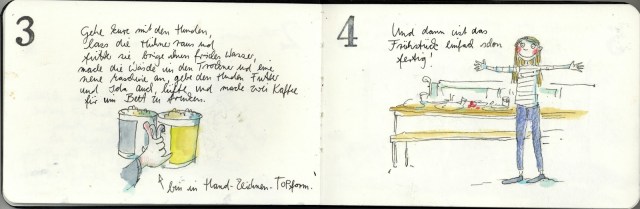 3
Gehe kurz mit den Hunden,
lass die Hühner raus und
gebe ihnen frisches Wasser,
mache die Wäsche in den Trockner und eine
neue Maschine an, gebe den Hunden Futter
und Jola auch, lüfte und mache zwei Kaffee
für uns im Bett zu trinken.
bin in Hand-Zeichnen-Topform.
4
Und dann ist das
Frühstück einfach schon
fertig!